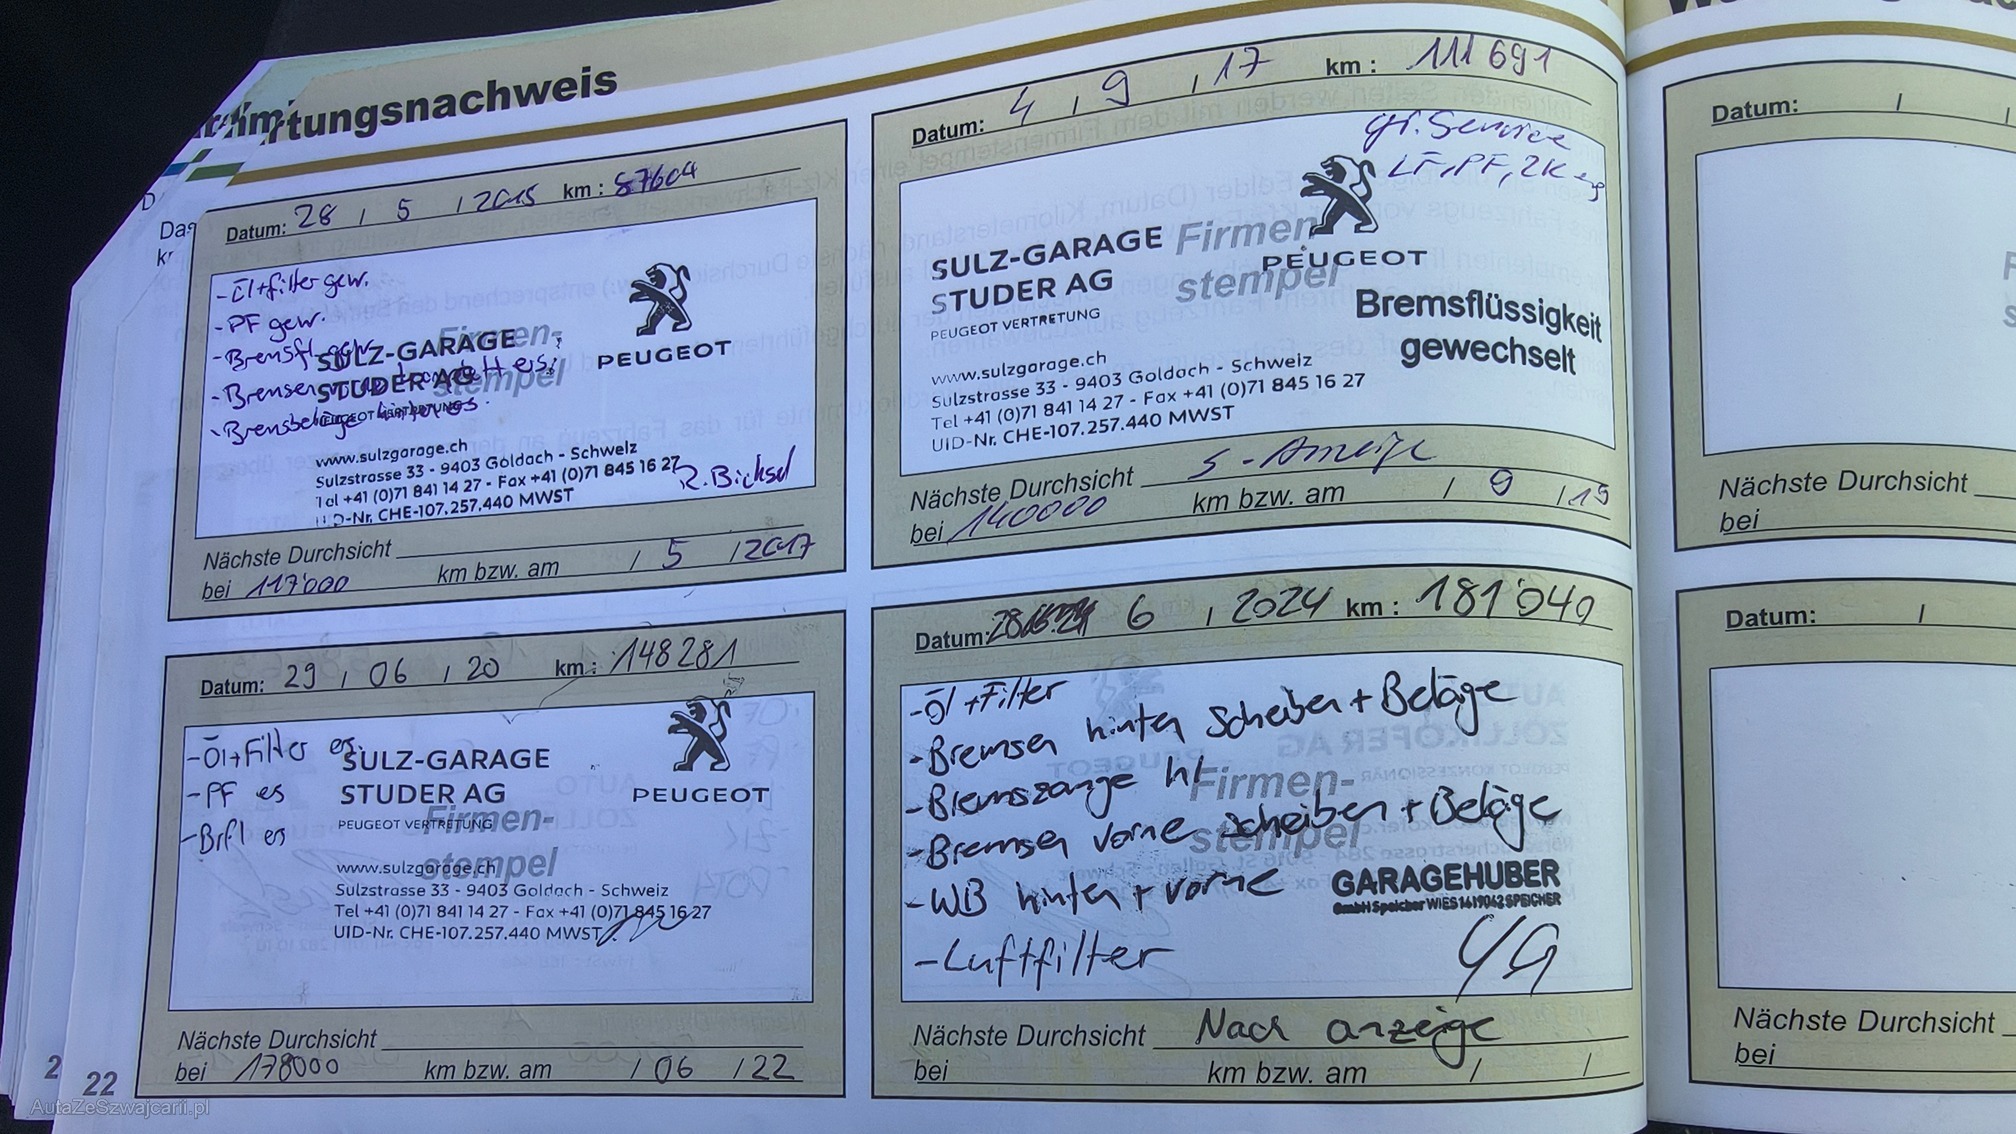 rtungsnachweis
Datum: 28 / 5 / 2015 km : 87604
- Öl+filter gew.
- PF gew.
- Bremsfl. gew.
Firmen-
stempel
SULZ-GARAGE
STUDER AG
PEUGEOT VERTRETUNG
PEUGEOT
www.sulzgarage.ch
Sulzstrasse 33 - 9403 Goldach - Schweiz
Tel +41 (0)71 841 14 27 - Fax +41 (0)71 845 16 27
UID-Nr. CHE-107.257.440 MWST
R. Bichsel
Nächste Durchsicht
bei 117'000 km bzw. am / 5 / 2017
Datum: 4 / 9 / 17 km : 111 691
gr. Service
LF, PF, ZK
Firmen
stempel
SULZ-GARAGE
STUDER AG
PEUGEOT VERTRETUNG
PEUGEOT
Bremsflüssigkeit
gewechselt
www.sulzgarage.ch
Sulzstrasse 33 - 9403 Goldach - Schweiz
Tel +41 (0)71 841 14 27 - Fax +41 (0)71 845 16 27
UID-Nr. CHE-107.257.440 MWST
Nächste Durchsicht S-Anzeige
bei 140000 km bzw. am / 9 / 19
Datum: 29 / 06 / 20 km : 148281
- Öl+Filter es
- PF es
- Brfl es
SULZ-GARAGE
STUDER AG
PEUGEOT VERTRETUNG
Firmen-
stempel
PEUGEOT
www.sulzgarage.ch
Sulzstrasse 33 - 9403 Goldach - Schweiz
Tel +41 (0)71 841 14 27 - Fax +41 (0)71 845 16 27
UID-Nr. CHE-107.257.440 MWST
Nächste Durchsicht
bei 178000 km bzw. am / 06 / 22
Datum: 6 / 2024 km : 181'040
- Öl+Filter
- Bremsen hinten Scheiben + Beläge
- Bremszange hl
- Bremsen vorne scheiben + Beläge
- WB hinten + vorne
- Luftfilter
Firmen-
stempel
GARAGEHUBER
GmbH Speicher WIES 14 | 9042 SPEICHER
Nächste Durchsicht Nach anzeige
bei km bzw. am / /
Datum: / /
Nächste Durchsicht
bei
Datum: /
Nächste Durchsicht
bei
2
22
AutaZeSzwajcarii.pl